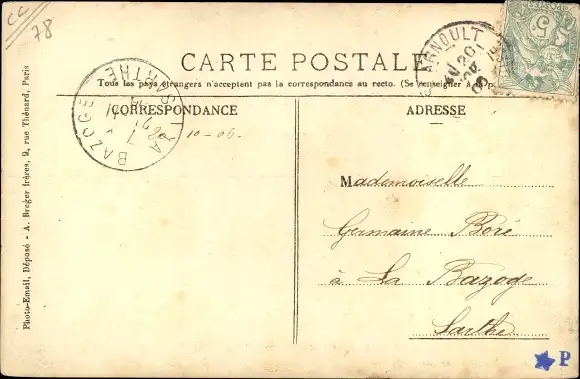 CC
78
CARTE POSTALE
Tous les pays étrangers n'acceptent pas la correspondance au recto. (Se renseigner à la p
CORRESPONDANCE
ADRESSE
ARNOULT
LA BAZOGE
SARTHE
20-10-06.
Mademoiselle
Germaine Boré
à La Bazoge
Sarthe
Photo-Email, Déposé - A. Breger frères, 9, rue Thénard, Paris
5
P